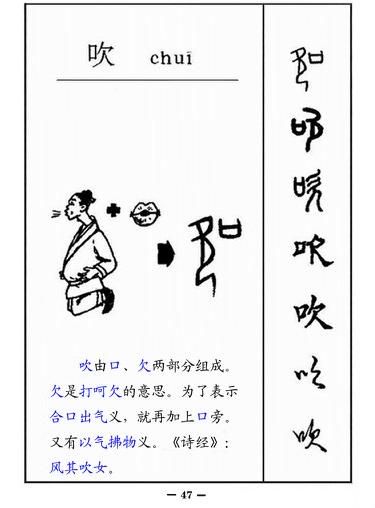 吹 chuī
吹由口、欠两部分组成。
欠是打呵欠的意思。为了表示
合口出气义，就再加上口旁。
又有以气拂物义。《诗经》：
风其吹女。
吹
吹
吹
吹
— 47 —